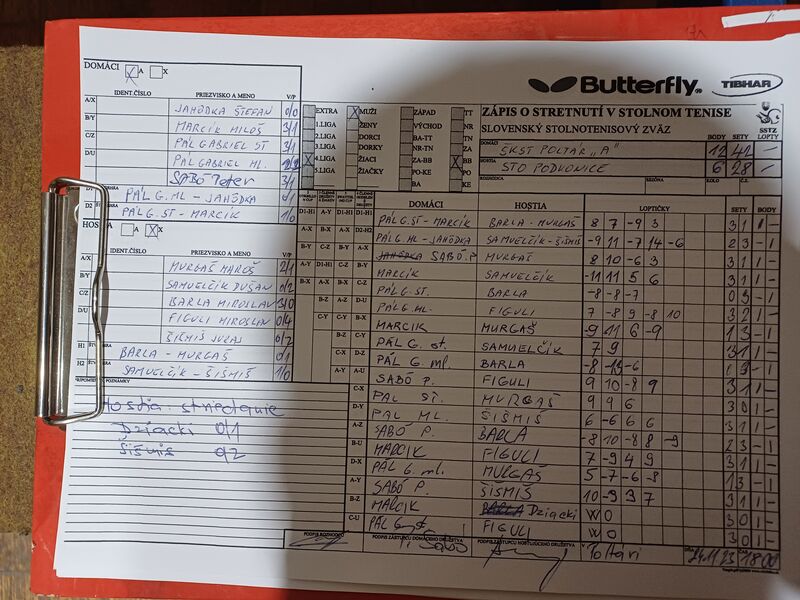 DOMÁCI X A X
Butterfly TIBHAR
IDENT.ČÍSLO PRIEZVISKO A MENO V/P
A/X JAHÔDKA ŠTEFAN 0/0
B/Y MARCÍK MILOŠ 3/1
C/Z PÁL GABRIEL ST 3/1
D/U PÁL GABRIEL ML.
SABÓ Peter 3/1
D1 PÁL G. ML - JAHÔDKA 0/1
D2 PÁL G. ST - MARCIK 1/0
EXTRA X MUŽI ZÁPAD TT
1.LIGA ŽENY VÝCHOD NR
2.LIGA DORCI BA-TT TN
3.LIGA DORKY NR-TN ZA
4.LIGA ŽIACI ZA-BB X BB
5.LIGA ŽIAČKY PO-KE PO
BA KE
ZÁPIS O STRETNUTÍ V STOLNOM TENISE
SLOVENSKÝ STOLNOTENISOVÝ ZVÄZ
BODY SETY SSTZ LOPTY
DOMÁCI ŠKST POLTÁR „A" 12 41
HOSTIA STO PODKONICE 6 28
ROZHODCA SEZÓNA KOLO
HOSTIA A X X
IDENT.ČÍSLO PRIEZVISKO A MENO V/P
A/X MURGAŠ MAROŠ 2/1
B/Y SAMUELČÍK DUŠAN 0/2
C/Z BARLA MIROSLAV 3/0
D/U FIGULI MIROSLAV 0/4
ŠIŠMIŠ JURAJ 0/2
H1 BARLA - MURGAŠ 0/1
H2 SAMUELČÍK - ŠIŠMIŠ 1/0
PRIPOMIENKY, POZNÁMKY
Hostia: striedanie
Dziacki 0/1
Šišmiš 0/2
DOMÁCI HOSTIA LOPTIČKY SETY BODY
PÁL G. ST - MARCIK BARLA - MURGAŠ 8 7 -9 3 3 1 1 -
PÁL ML - JAHÔDKA SAMUELČÍK - ŠIŠMIŠ -9 11 -7 14 -6 2 3 - 1
JAHÔDKA SABÓ P. MURGAŠ 8 10 -6 3 3 1 1 -
MARCIK SAMUELČÍK -11 11 5 6 3 1 1 -
PÁL G. ST. BARLA -8 -8 -7 0 3 - 1
PÁL G. ML. FIGULI 7 -8 9 -8 10 3 2 1 -
MARCIK MURGAŠ -9 11 6 -9 1 3 - 1
PÁL G. st. SAMUELČÍK 7 9 3 1 1 -
PÁL G. ml. BARLA
SABÓ P. FIGULI 9 10 -8 9 3 1 1 -
PÁL ST. MURGAŠ 9 9 6 3 0 1 -
PÁL ML. ŠIŠMIŠ 6 -6 6 6 3 1 1 -
SABÓ P. BARLA -8 10 -8 8 -9 2 3 - 1
MARCIK FIGULI 7 -9 4 9 3 1 1 -
PÁL G. ml. MURGAŠ 5 -7 -6 -8 1 3 - 1
SABÓ P. ŠIŠMIŠ 10 -9 3 7 3 1 1 -
MARCIK BARLA Dziacki W O 3 0 1 -
PÁL G. st. FIGULI W O 3 0 1 -
PODPIS ROZHODCU PODPIS ZÁSTUPCU DOMÁCEHO DRUŽSTVA PODPIS ZÁSTUPCU HOSŤUJÚCEHO DRUŽSTVA V Poltári 18 00